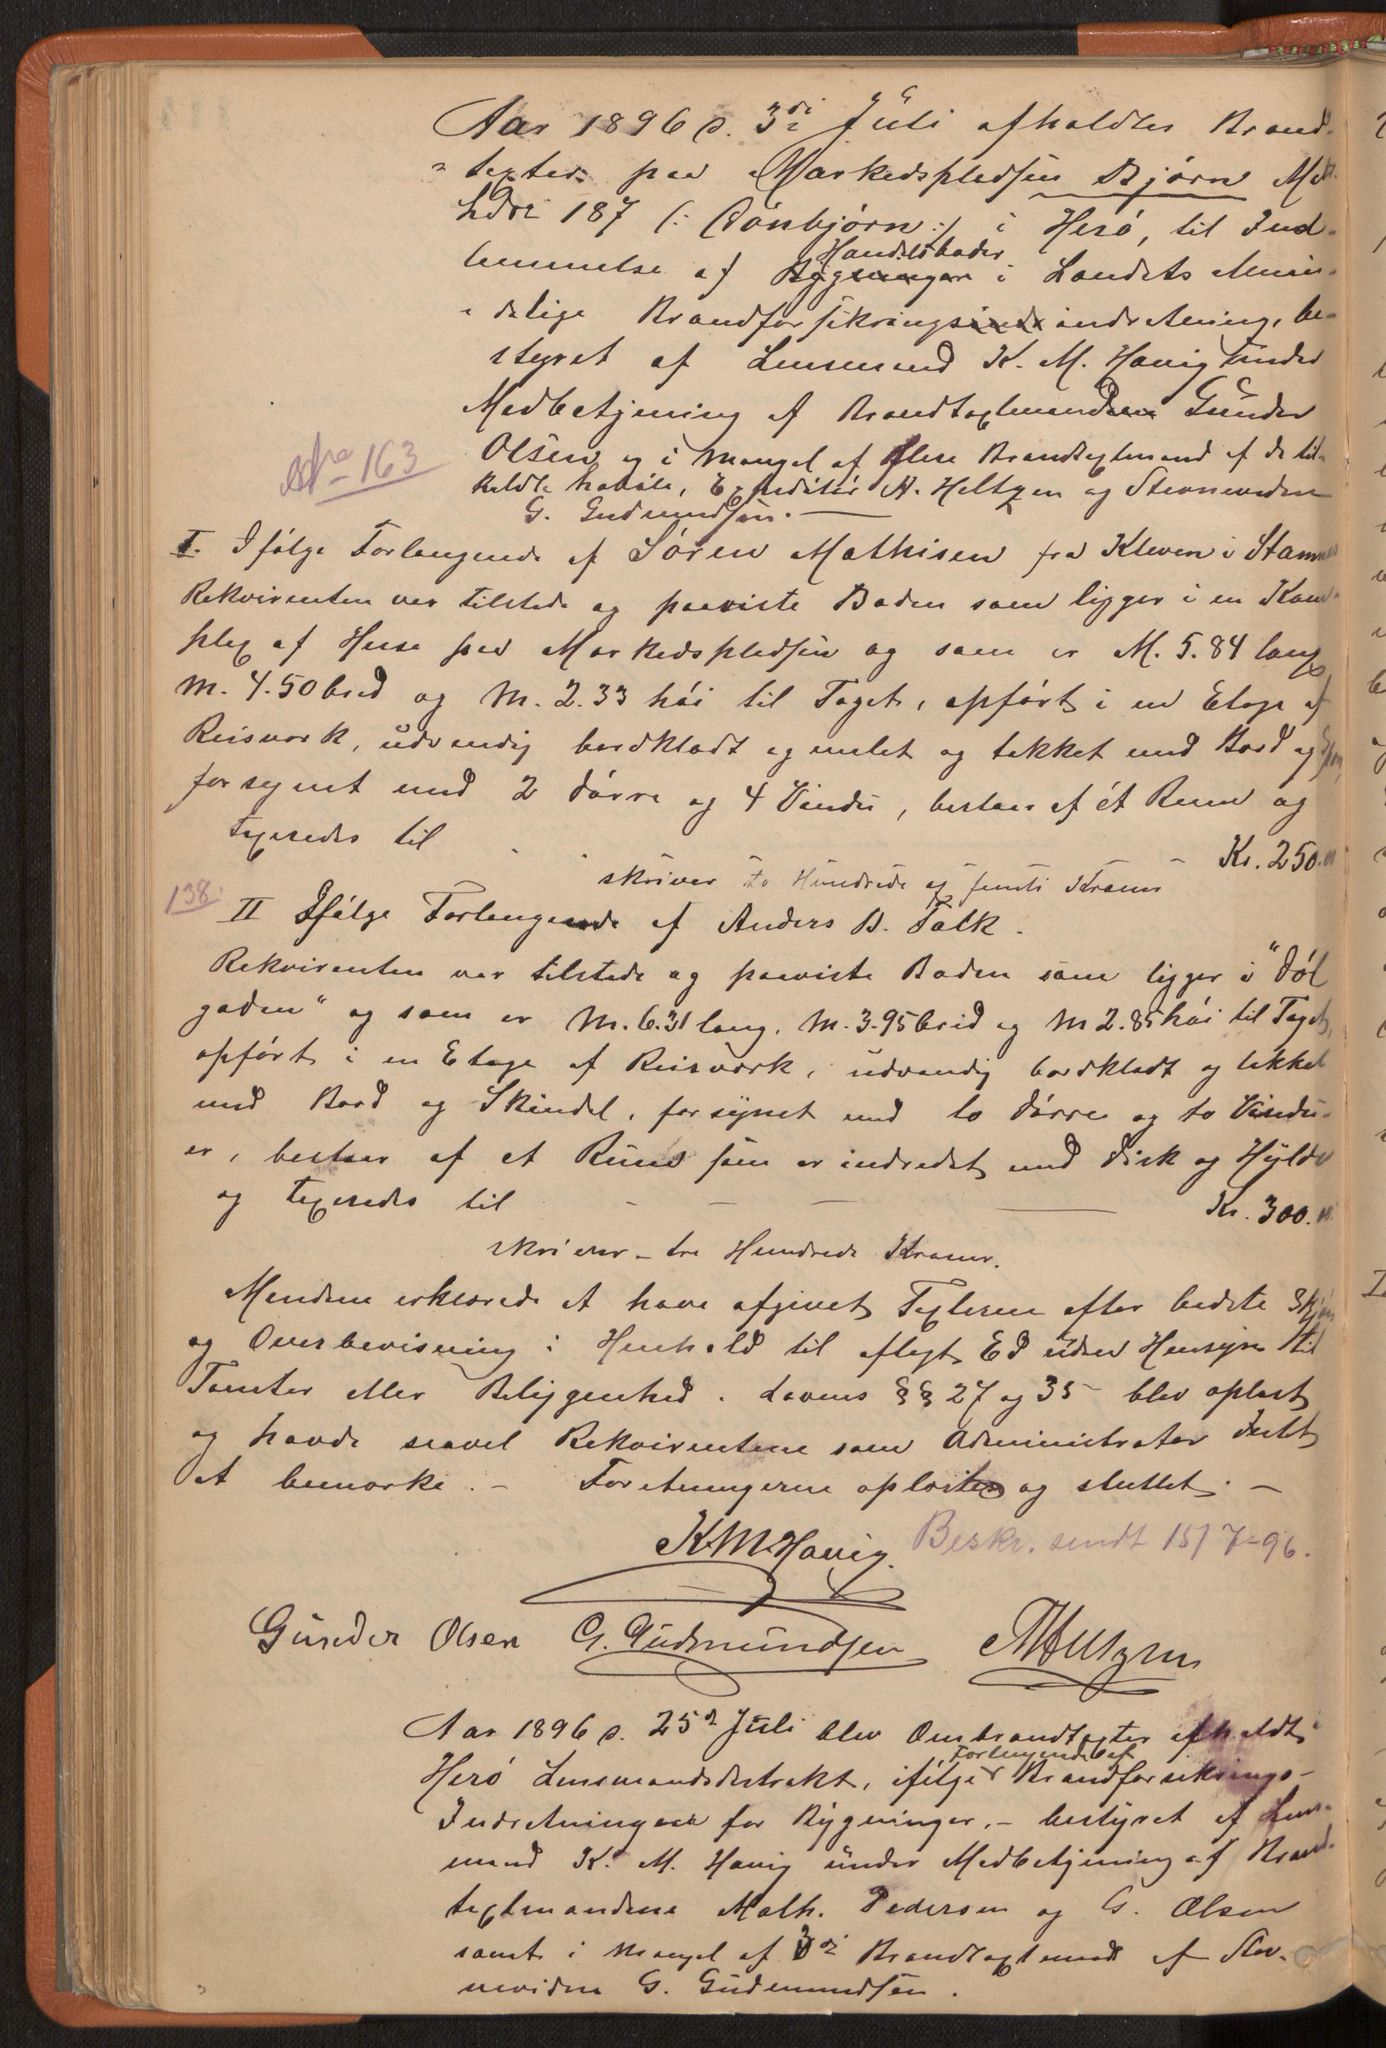 Aar 1896 d. 3di Juli afholdtes Brand-
taxter paa Markedspladsen Bjørn Mat.
Løbe 187 (: Dønbjørn :) i Herø, til Ind-
lemmelse af Bygninger Handelsboder i Landets Almin-
delige Brandforsikringsind indretning, be-
styret af Lensmand K. M. Havig under
Medbetjening af Brandtaxtmændene Gunder
No 163
Olsen og i Mangel af flere Brandtaxtmænd af de til-
kaldte habile, Expeditør A. Heltzen og Stevnevidne
G. Gudmundsen.
I. Ifølge Forlangende af Søren Mathisen fra Kleven i Stamnes
Rekvirenten var tilstede og paaviste Boden som ligger i en Kom-
plex af Huse paa Markedspladsen og som er M. 5.84 lang
M. 4.50 bred og M. 2.33 høi til Taget, opført i en Etage af
Reisverk, udvendig bordklædt og malet og tækket med Bord og Spon,
forsynet med 2 Dørre og 4 Vindu, bestaar af ét Rum og
taxeredes til Kr. 250.00
skriver to Hundrede og femti Kroner
138.
II Ifølge Forlangende af Anders B. Falk.
Rekvirenten var tilstede og paaviste Boden som ligger i "Døl
gaden" og som er M. 6.31 lang. M. 3.95 bred og M 2.85 høi til Taget,
opført i en Etage af Reisverk, udvendig bordklædt og tækket
med Bord og Skindel, forsynet med to Dørre og to Vindu-
er, bestaar af et Rum som er indredet med Disk og Hylder
og taxeredes til Kr. 300.00
skriver - tre Hundrede Kroner.
Mændene erklærede at have afgivet Taxterne efter bedste Skjøn
og Overbevisning i Henhold til aflagt Ed uden Hensyn til
Tomter eller Beliggenhed. Lovens §§ 27 og 35 blev oplæst
og havde saavel Rekvirentene som Administrator Intet
at bemærke. - Forretningerne oplæstes og sluttet. -
KMHavig. Beskr. sendt 15/7-96.
Gunder Olsen G. Gudmundsen AHeltzen
Aar 1896 d. 25de Juli blev Ombrandtaxter afholdt i
Herø Lensmandsdistrikt, ifølge Forlangende af Brandforsikrings-
Indretningen for Bygninger, - bestyret af Lens-
mand K. M. Havig under Medbetjening af Brand-
taxtmændene Math. Pedersen og G. Olsen
samt i Mangel af 3die Brandtaxtmand af Stev-
nevidne G. Gudmundsen.